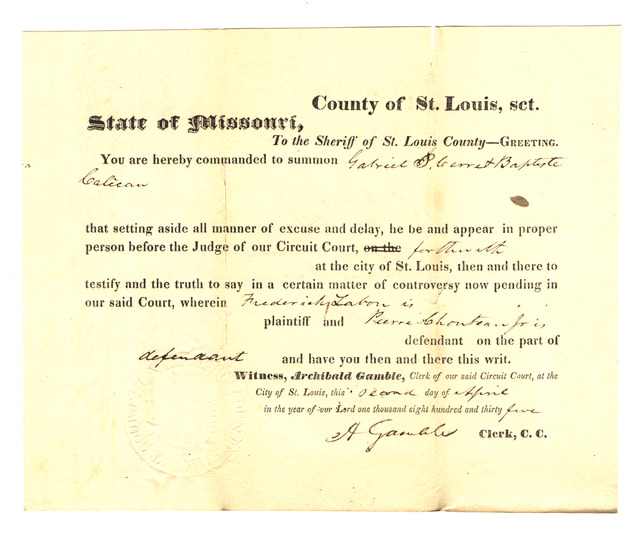 County of St. Louis, sct.
State of Missouri,
To the Sheriff of St. Louis County—GREETING.
You are hereby commanded to summon Gabriel S. Cerre & Baptiste
Calican
that setting aside all manner of excuse and delay, he be and appear in proper
person before the Judge of our Circuit Court, on the forthwith
at the city of St. Louis, then and there to
testify and the truth to say in a certain matter of controversy now pending in
our said Court, wherein Frederick Labon is
plaintiff and Pierre Chouteau Jr is
defendant on the part of
defendant and have you then and there this writ.
Witness, Archibald Gamble, Clerk of our said Circuit Court, at the
City of St. Louis, this second day of April
in the year of our Lord one thousand eight hundred and thirty five
A Gamble Clerk, C. C.